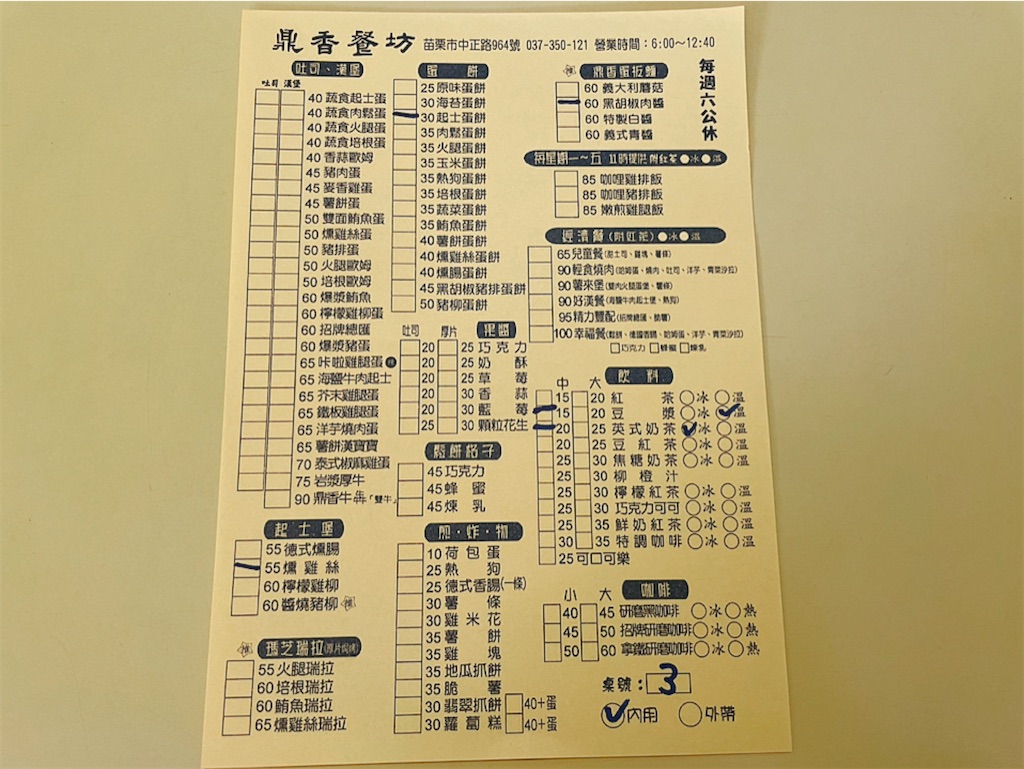 鼎香餐坊 苗栗市中正路964號 037-350-121 營業時間：6:00～12:40
每週六公休
吐司、漢堡
吐司 漢堡
40 蔬食起士蛋
40 蔬食肉鬆蛋
40 蔬食火腿蛋
40 蔬食培根蛋
40 香蒜歐姆
45 豬肉蛋
45 麥香雞蛋
45 薯餅蛋
50 雙面鮪魚蛋
50 燻雞絲蛋
50 豬排蛋
50 火腿歐姆
50 培根歐姆
60 爆漿鮪魚
60 檸檬雞柳蛋
60 招牌總匯
60 爆漿豬蛋
65 咔啦雞腿蛋
65 海鹽牛肉起士
65 芥末雞腿蛋
65 鐵板雞腿蛋
65 洋芋燒肉蛋
65 薯餅漢寶寶
70 泰式椒麻雞蛋
75 岩漿厚牛
90 鼎香牛犇「雙牛」
起士堡
55 德式燻腸
55 燻雞絲
60 檸檬雞柳
60 醬燒豬柳 推
推 瑪芝瑞拉(厚片焗烤)
55 火腿瑞拉
60 培根瑞拉
60 鮪魚瑞拉
65 燻雞絲瑞拉
蛋餅
25 原味蛋餅
30 海苔蛋餅
30 起士蛋餅
35 肉鬆蛋餅
35 火腿蛋餅
35 玉米蛋餅
35 熱狗蛋餅
35 培根蛋餅
35 蔬菜蛋餅
35 鮪魚蛋餅
40 薯餅蛋餅
40 燻雞絲蛋餅
40 燻腸蛋餅
45 黑胡椒豬排蛋餅
50 豬柳蛋餅
吐司 厚片
20 25 巧克力
20 25 奶酥
20 25 草莓
20 30 香蒜
20 30 藍莓
25 30 顆粒花生
鬆餅格子
45 巧克力
45 蜂蜜
45 煉乳
煎·炸·物
10 荷包蛋
25 熱狗
25 德式香腸(一條)
30 薯條
30 雞米花
35 薯餅
35 雞塊
35 地瓜抓餅
35 脆薯
30 翡翠抓餅 40+蛋
30 蘿蔔糕 40+蛋
推 鼎香蛋板麵
60 義大利蘑菇
60 黑胡椒肉醬
60 特製白醬
60 義式青醬
每星期一～五 11時提供 附紅茶●冰●溫
85 咖哩雞排飯
85 咖哩豬排飯
85 嫩煎雞腿飯
經濟餐(附紅茶)●冰●溫
65 兒童餐(起士司、雞塊、薯條)
90 輕食燒肉(哈姆蛋、燒肉、吐司、洋芋、青菜沙拉)
90 薯來堡(雙肉火腿蛋堡、薯條)
90 好漢餐(海鹽牛肉起士堡、熱狗)
95 精力豐配(招牌總匯、脆薯)
100 幸福餐(鬆餅、德國香腸、哈姆蛋、洋芋、青菜沙拉)
□巧克力 □蜂蜜 □煉乳
飲料
中 大
15 20 紅茶 ○冰 ○溫
15 20 豆漿 ○冰 ○溫
20 25 英式奶茶 ○冰 ○溫
25 30 豆紅茶 ○冰 ○溫
25 30 焦糖奶茶 ○冰 ○溫
25 30 柳橙汁
25 30 檸檬紅茶 ○冰 ○溫
25 30 巧克力可可 ○冰 ○溫
25 35 鮮奶紅茶 ○冰 ○溫
30 35 特調咖啡 ○冰 ○溫
25 可口可樂
咖啡
小 大
40 45 研磨黑咖啡 ○冰 ○熱
45 50 招牌研磨咖啡 ○冰 ○熱
50 60 拿鐵研磨咖啡 ○冰 ○熱
桌號：3
內用 ○外帶